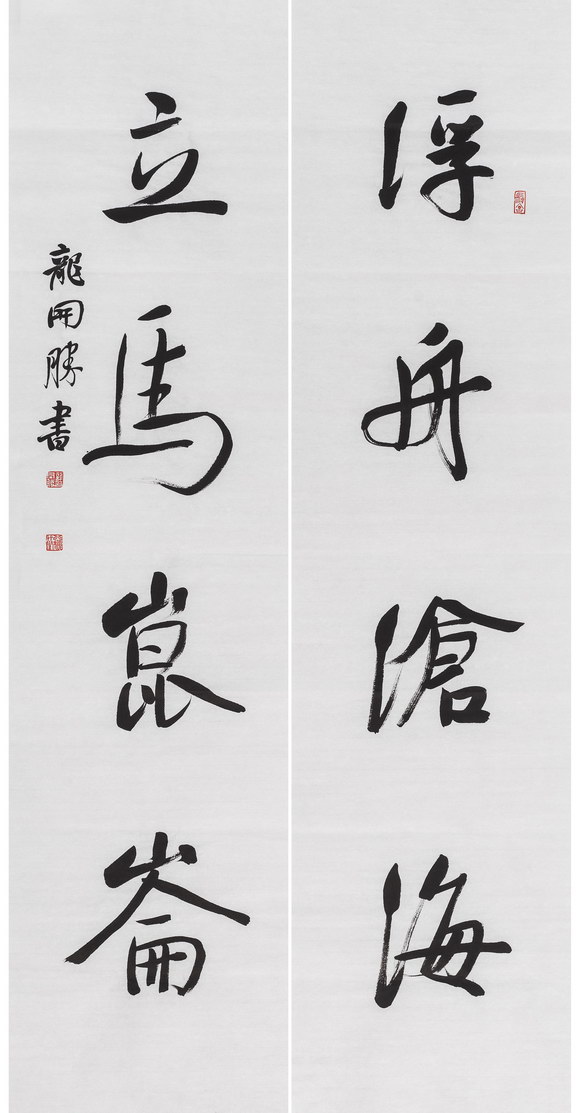 浮舟滄海
立馬崑崙
龍開勝書